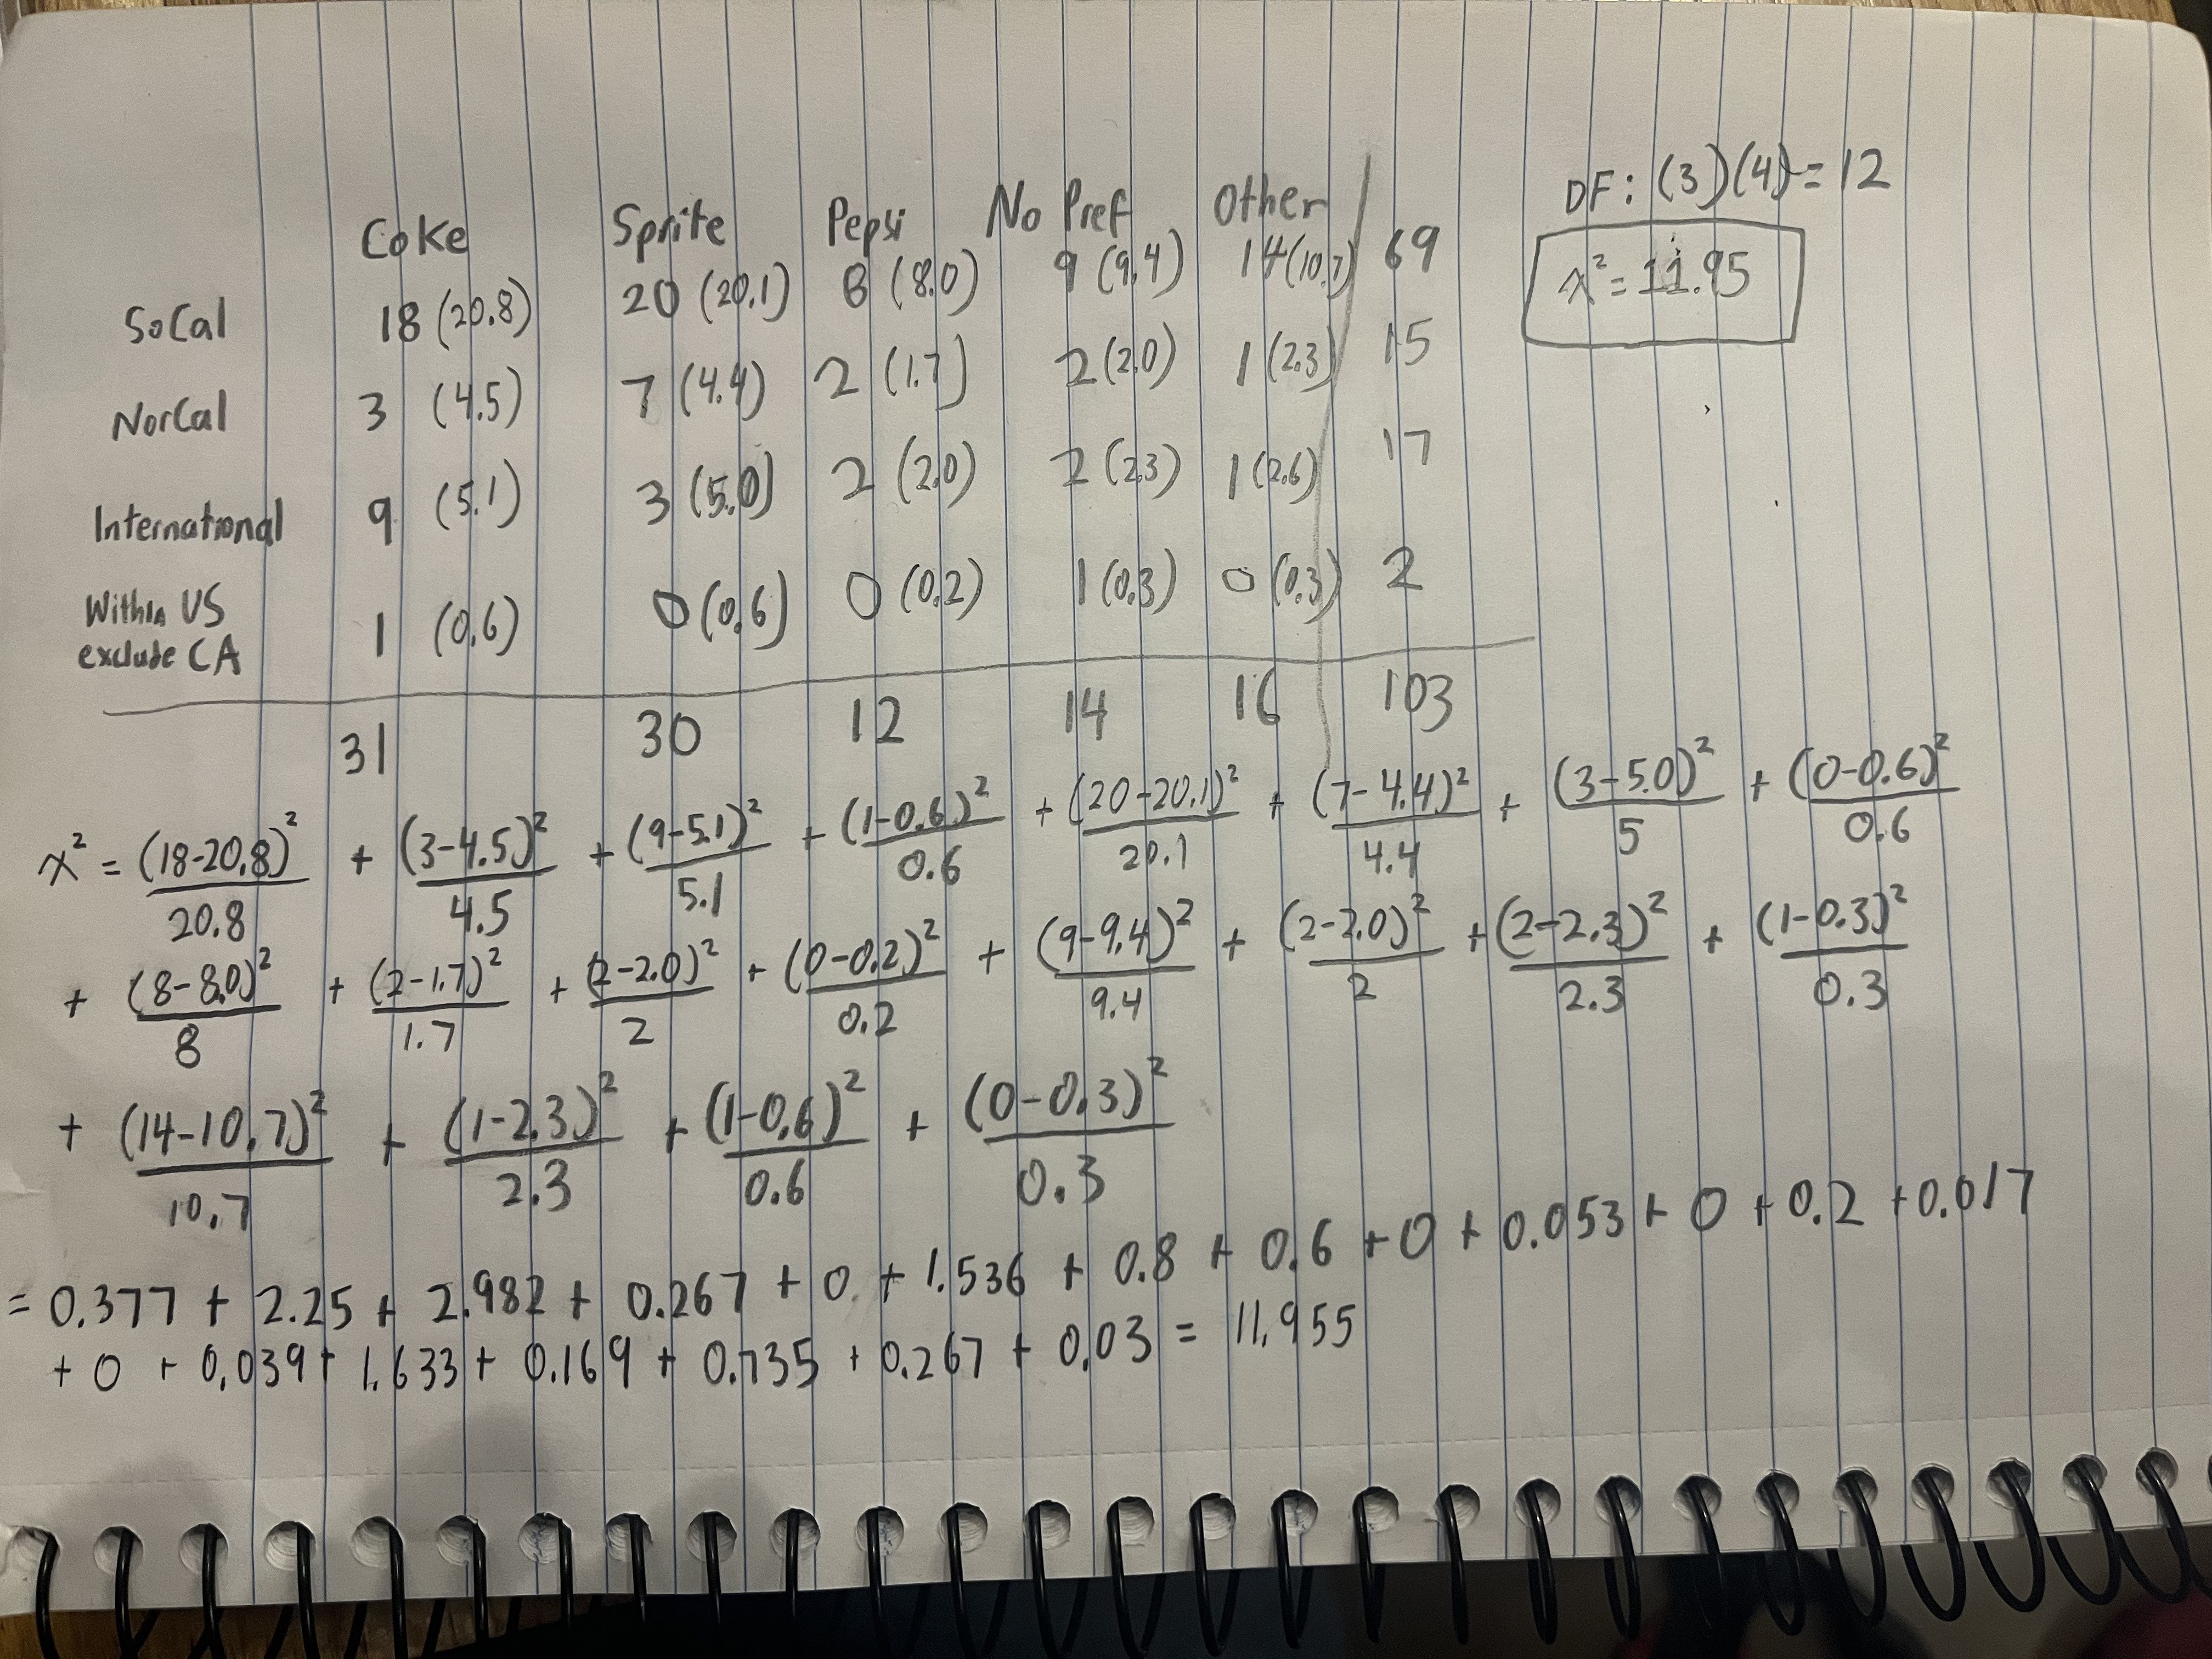 Coke Sprite Pepsi No Pref Other DF: (3)(4) = 12
SoCal 18 (20.8) 20 (20.1) 8 (8.0) 9 (9.4) 14 (10.7) 69 x² = 11.95
NorCal 3 (4.5) 7 (4.4) 2 (1.7) 2 (2.0) 1 (2.3) 15
International 9 (5.1) 3 (5.0) 2 (2.0) 2 (2.3) 1 (2.6) 17
Within US
exclude CA 1 (0.6) 0 (0.6) 0 (0.2) 1 (0.3) 0 (0.3) 2
31 30 12 14 16 103
x² = (18-20.8)²/20.8 + (3-4.5)²/4.5 + (9-5.1)²/5.1 + (1-0.6)²/0.6 + (20-20.1)²/20.1 + (7-4.4)²/4.4 + (3-5.0)²/5 + (0-0.6)²/0.6
+ (8-8.0)²/8 + (2-1.7)²/1.7 + (2-2.0)²/2 + (0-0.2)²/0.2 + (9-9.4)²/9.4 + (2-2.0)²/2 + (2-2.3)²/2.3 + (1-0.3)²/0.3
+ (14-10.7)²/10.7 + (1-2.3)²/2.3 + (1-0.6)²/0.6 + (0-0.3)²/0.3
= 0.377 + 2.25 + 2.982 + 0.267 + 0 + 1.536 + 0.8 + 0.6 + 0 + 0.053 + 0 + 0.2 + 0.017
+ 0 + 0.039 + 1.633 + 0.169 + 0.735 + 0.267 + 0.03 = 11.955